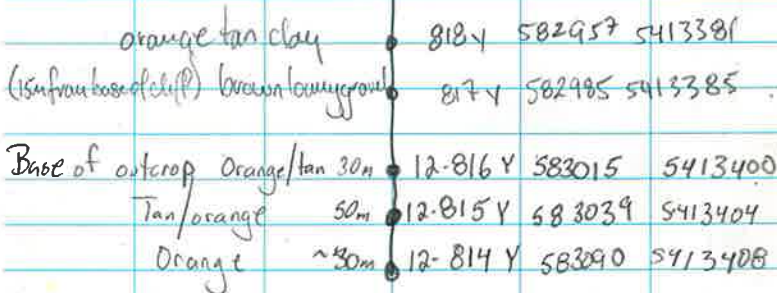 orange tan clay 818 Y 582957 5413381
(15m from base of cliff) brown loamy gravel 817 Y 582985 5413385
Base of outcrop Orange/tan 30m 12-816 Y 583015 5413400
Tan/orange 50m 12-815 Y 583039 5413404
Orange ~30m 12-814 Y 583090 5413408